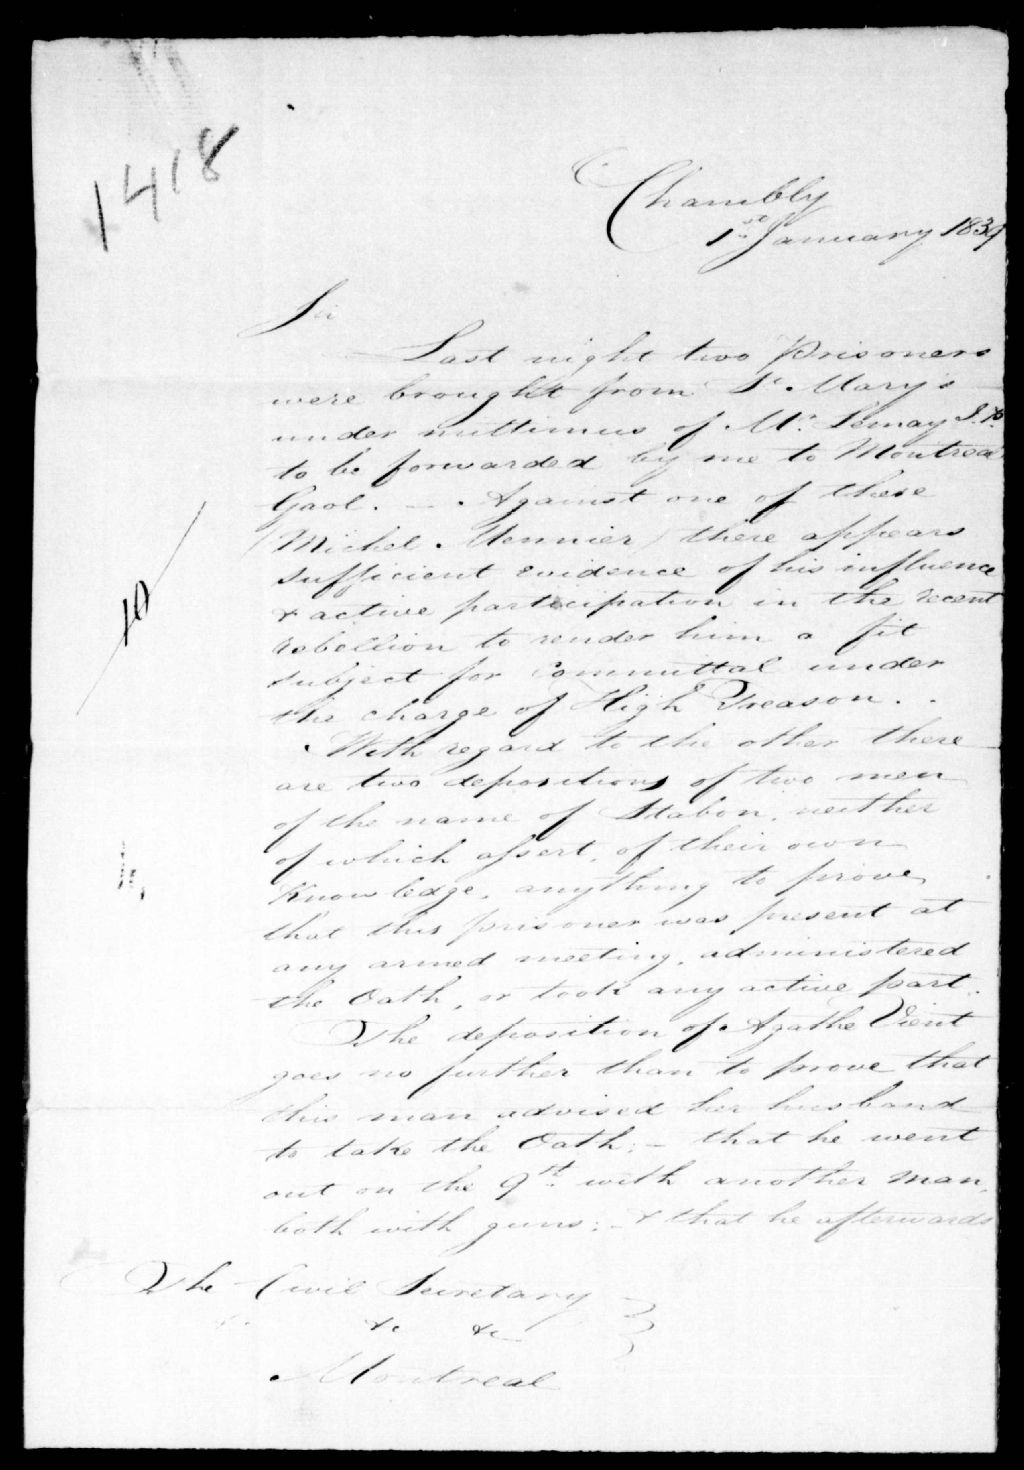 1418
Chambly
1st January 1839
Sir
Last night two Prisoners
were brought from St. Mary's
under mittimus of Mr. Lemay J.P.
to be forwarded by me to Montreal
Gaol. — Against one of these
(Michel Mennier) there appears
sufficient evidence of his influence
& active participation in the recent
rebellion to render him a fit
subject for committal under
the charge of High Treason.
With regard to the other there
are two depositions of two men
of the name of Stabon, neither
of which assert, of their own
Knowledge, anything to prove
that this prisoner was present at
any armed meeting, administered
the Oath, or took any active part.
The deposition of Agathe Vient
goes no further than to prove that
this man advised her husband
to take the Oath; — that he went
out on the 9st. with another man,
both with guns; — & that he afterwards
The Civil Secretary
&c &c
Montreal
10